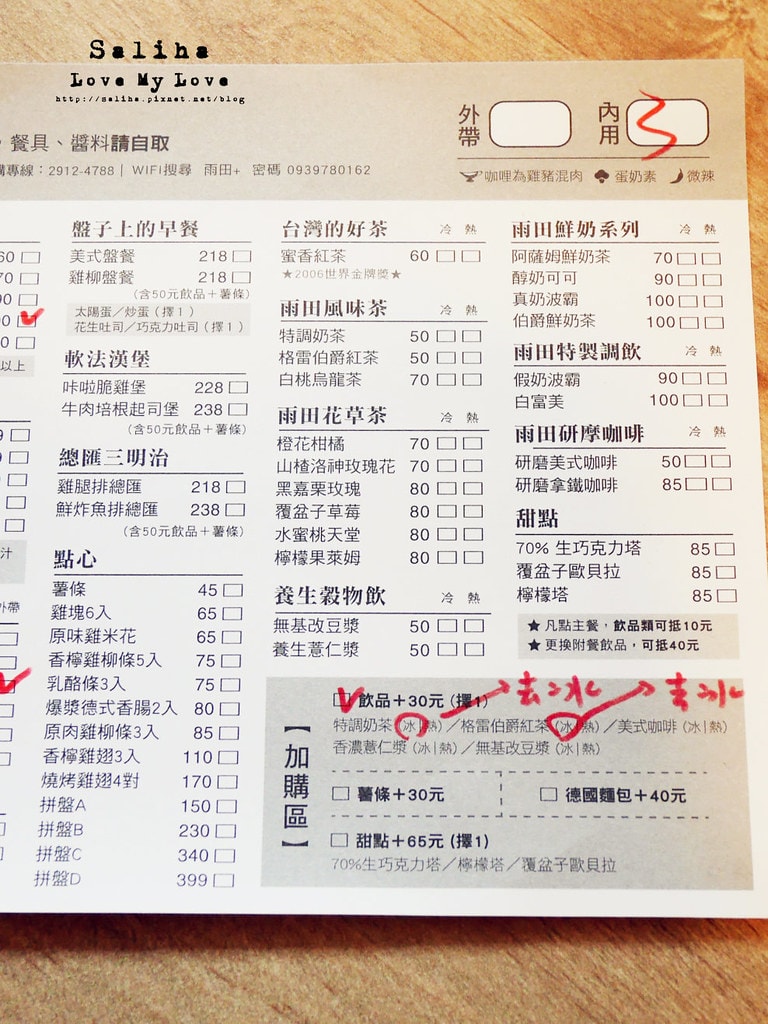 Saliha
Love My Love
http://saliha.pixnet.net/blog
外帶
內用 3
、餐具、醬料請自取
購專線：2912-4788 | WIFI搜尋 雨田+ 密碼 0939780162
咖哩為雞豬混肉 蛋奶素 微辣
盤子上的早餐
美式盤餐 218
雞柳盤餐 218
(含50元飲品＋薯條)
太陽蛋／炒蛋（擇1）
花生吐司／巧克力吐司（擇1）
軟法漢堡
咔啦脆雞堡 228
牛肉培根起司堡 238
(含50元飲品＋薯條)
總匯三明治
雞腿排總匯 218
鮮炸魚排總匯 238
(含50元飲品＋薯條)
點心
薯條 45
雞塊6入 65
原味雞米花 65
香檸雞柳條5入 75
乳酪條3入 75
爆漿德式香腸2入 80
原肉雞柳條3入 85
香檸雞翅3入 110
燒烤雞翅4對 170
拼盤A 150
拼盤B 230
拼盤C 340
拼盤D 399
台灣的好茶 冷 熱
蜜香紅茶 60
★2006世界金牌獎★
雨田風味茶 冷 熱
特調奶茶 50
格雷伯爵紅茶 50
白桃烏龍茶 70
雨田花草茶 冷 熱
橙花柑橘 70
山楂洛神玫瑰花 70
黑嘉栗玫瑰 80
覆盆子草莓 80
水蜜桃天堂 80
檸檬果萊姆 80
養生穀物飲 冷 熱
無基改豆漿 50
養生薏仁漿 50
雨田鮮奶系列 冷 熱
阿薩姆鮮奶茶 70
醇奶可可 90
真奶波霸 100
伯爵鮮奶茶 100
雨田特製調飲 冷 熱
假奶波霸 90
白富美 100
雨田研摩咖啡 冷 熱
研磨美式咖啡 50
研磨拿鐵咖啡 85
甜點
70% 生巧克力塔 85
覆盆子歐貝拉 85
檸檬塔 85
★ 凡點主餐，飲品類可抵10元
★ 更換附餐飲品，可抵40元
【加購區】
飲品＋30元 (擇1) 去冰 去冰
特調奶茶 (冰|熱)／格雷伯爵紅茶 (冰|熱)／美式咖啡 (冰|熱)
香濃薏仁漿 (冰|熱)／無基改豆漿 (冰|熱)
薯條＋30元 德國麵包＋40元
甜點＋65元 (擇1)
70%生巧克力塔／檸檬塔／覆盆子歐貝拉
以上
汁
外帶